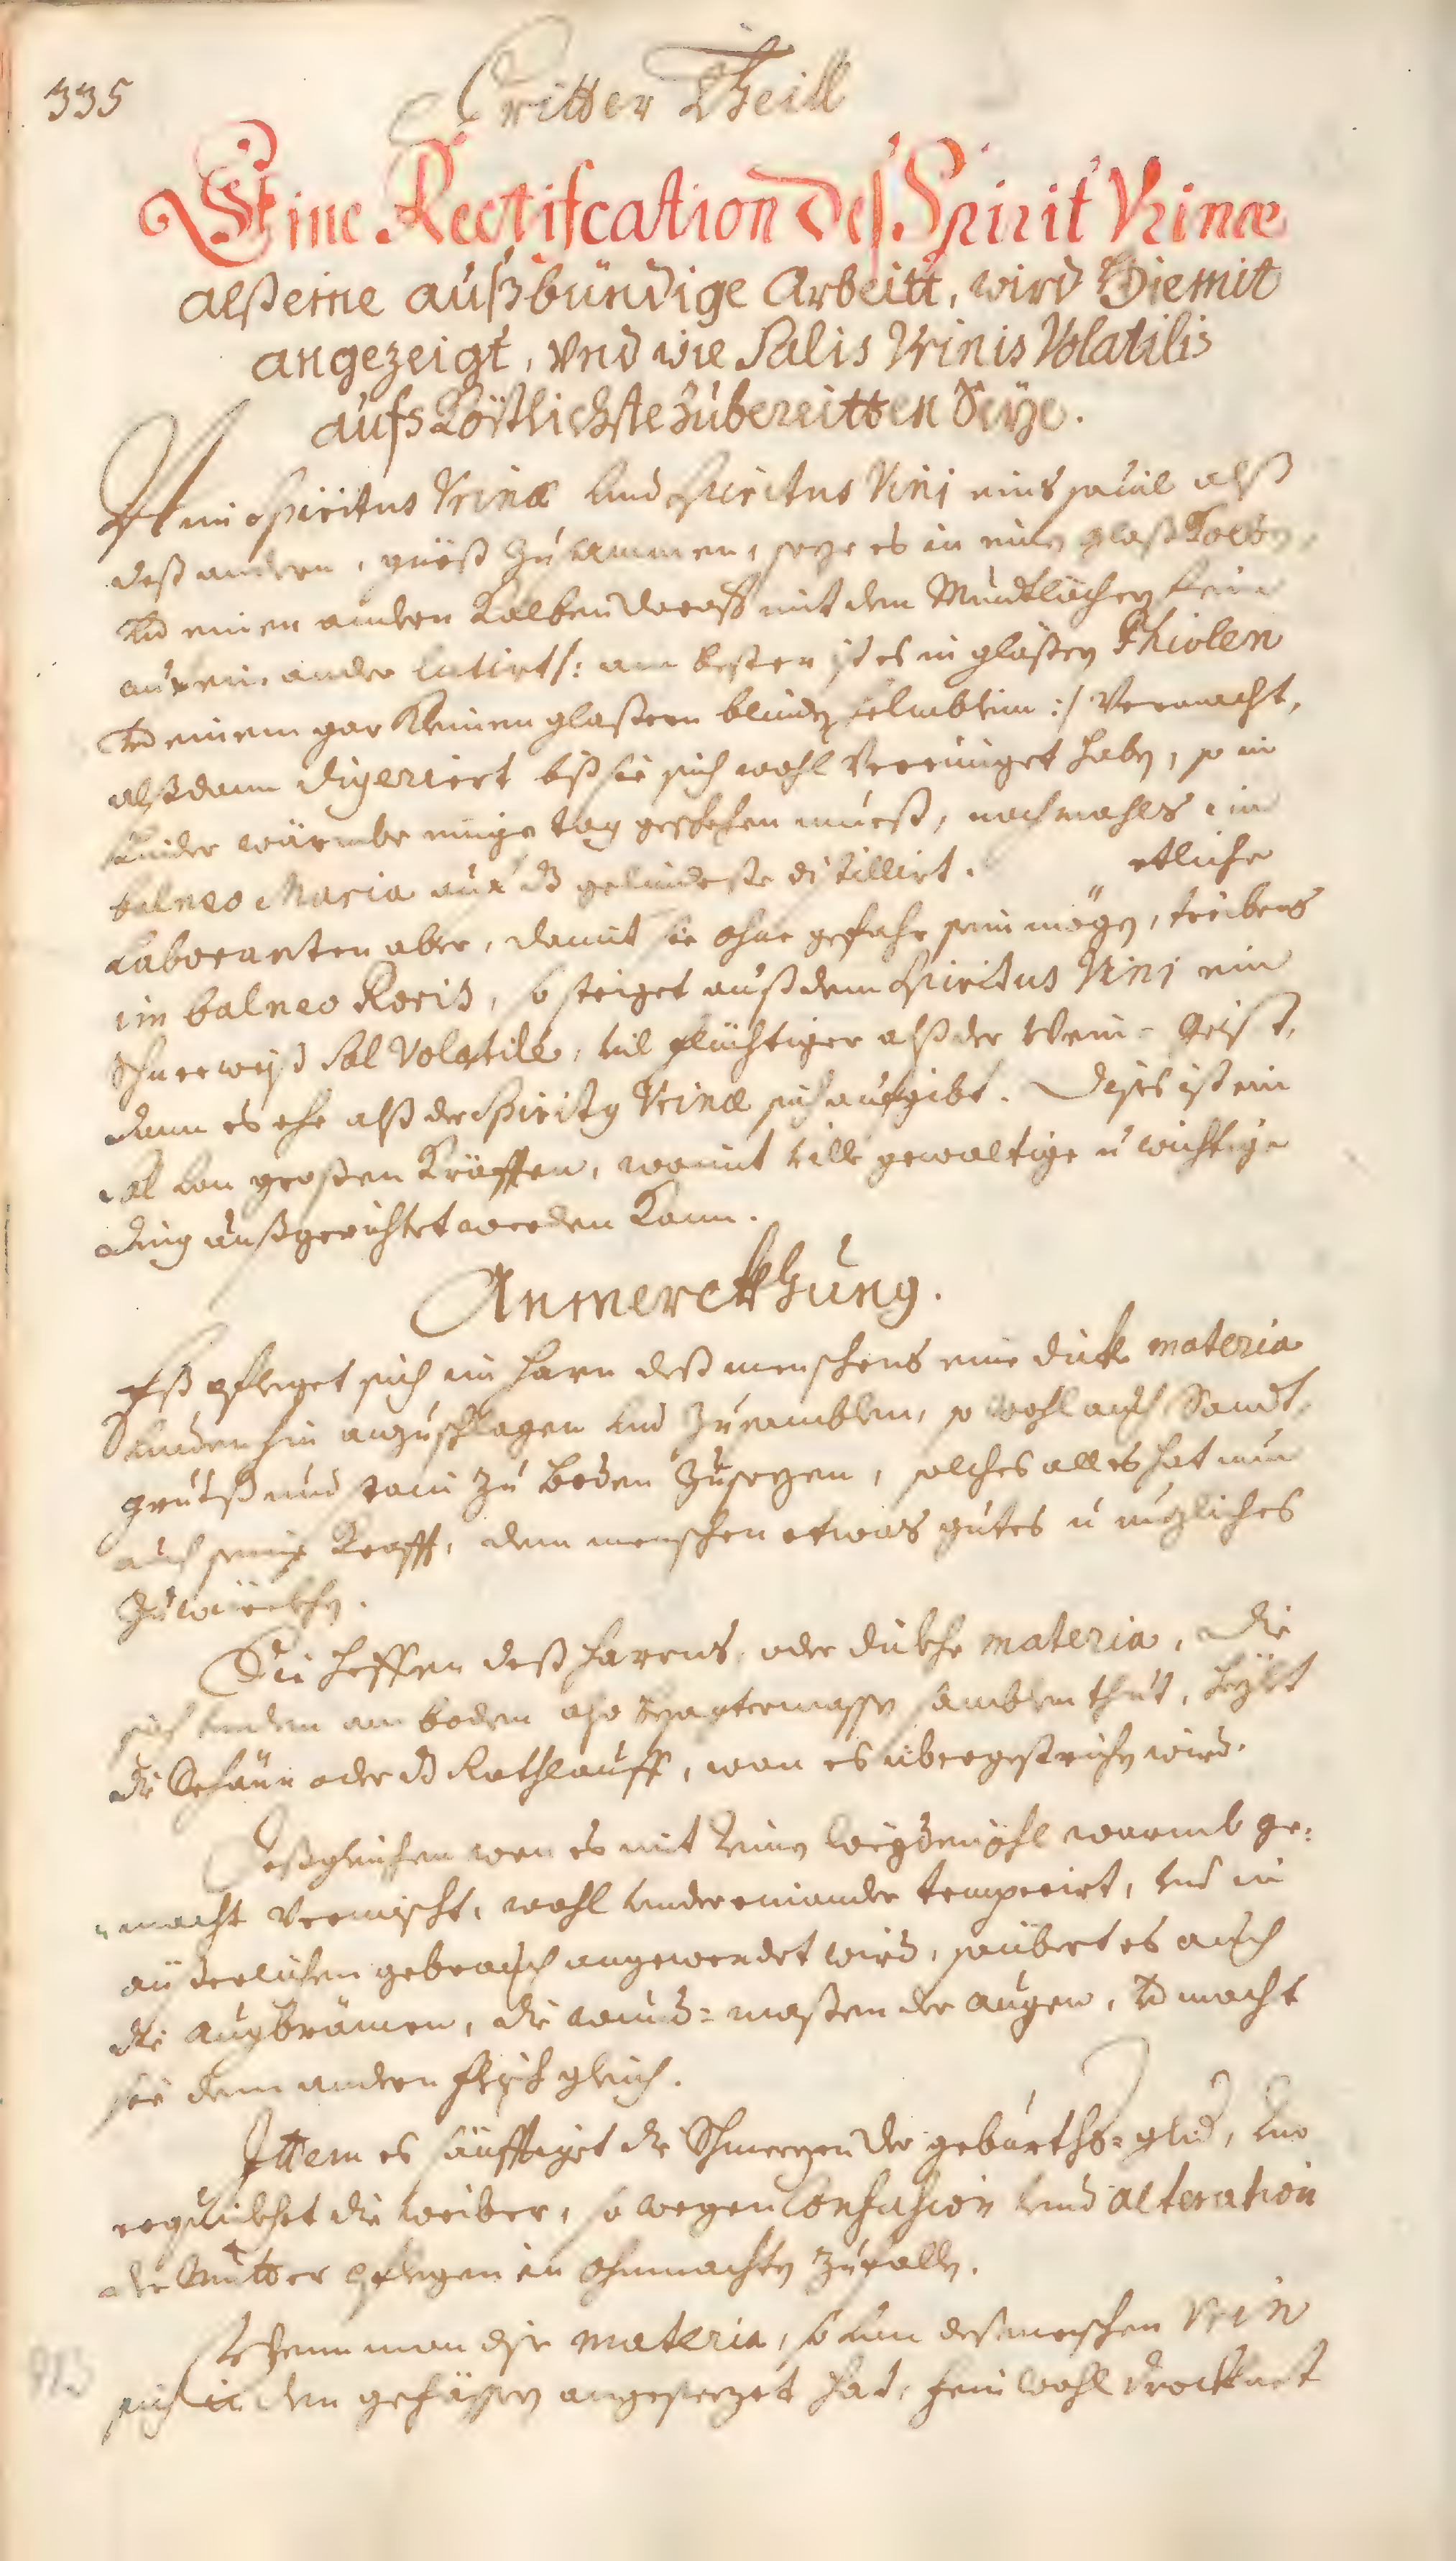 335
Dritter Theill
Eine Rectifcation deß Spirit Vrinæ
alß eine außbündige Arbeitt, wird hiemit
angezeigt, vnd wie Salis Vrinis Volatilis
aufs Köstlichste zubereitten seye.
Nim Spiritus Vrinæ und Spiritus Vini eins sovil alß
deß andern, gueß zusammen, seze es in einen glaß Kolben
und einen andern Kolben darauf mit dem Mundtlöchern fein
auf ein ander lutirt /: am besten ist es in glaßen Phiolen
und einem gar kleinen glaßern blinden Helmblein :/ Vermacht,
alßdann digeriert biß sie sich wohl Vereiniget haben, so in
linder wärmbe einige tag geschehen mueß, nachmahls im
balneo Maria auf das gelindeste distillirt. etliche
Laboranten aber, damit sie ohne gefahr sein mögen, treibens
im balneo Roris, so steiget auß dem Spiritus Vini ein
schneeweiß Sal Volatile, vil flüchtiger alß der Wein-Geist,
dann es ehe alß der Spiritus Vrinæ sich aufgibt. Dises ist ein
Sal von großen Kräfften, womit ville gewaltige u wichtige
Ding außgerichtet werden kann.
Anmerckhung.
Eß pfleget sich im Harn deß menschens eine dicke materia
unden hin anzuschlagen und zusamblen, so wohl auch Sandt,
grieß und stain zu Boden zusezen, solches alles hat nun
auch seine Krafft, dem menschen etwas gutes u nuzliches
zuwürckhen.
Die Heffen deß Harns, oder dickhe materia, die
sich unden am boden also gesagtermassen samblen thut, heylet
die oder das Rothlauff, wan es übergestrichen wird.
Deßgleichen wan es mit warmb ge-
macht Vermischt, wohl undereinander temperirt, und in
äuserlichen gebrauch angewendet wird, saubert es auch
die Augbrämen, die wund-maßen der augen, und macht
sie dem andern fleisch gleich.
Ittem es sänfftiget die Schmerzen der geburths-glid, und
erquickhet die weiber, so wegen Confusion und alteration
der Mutter pflegen in ohnmachten zufallen.
Wann man dise materia, so von deß menschen Vrin
sich in den gefässen angesezet hat, fein wohl drockhnet